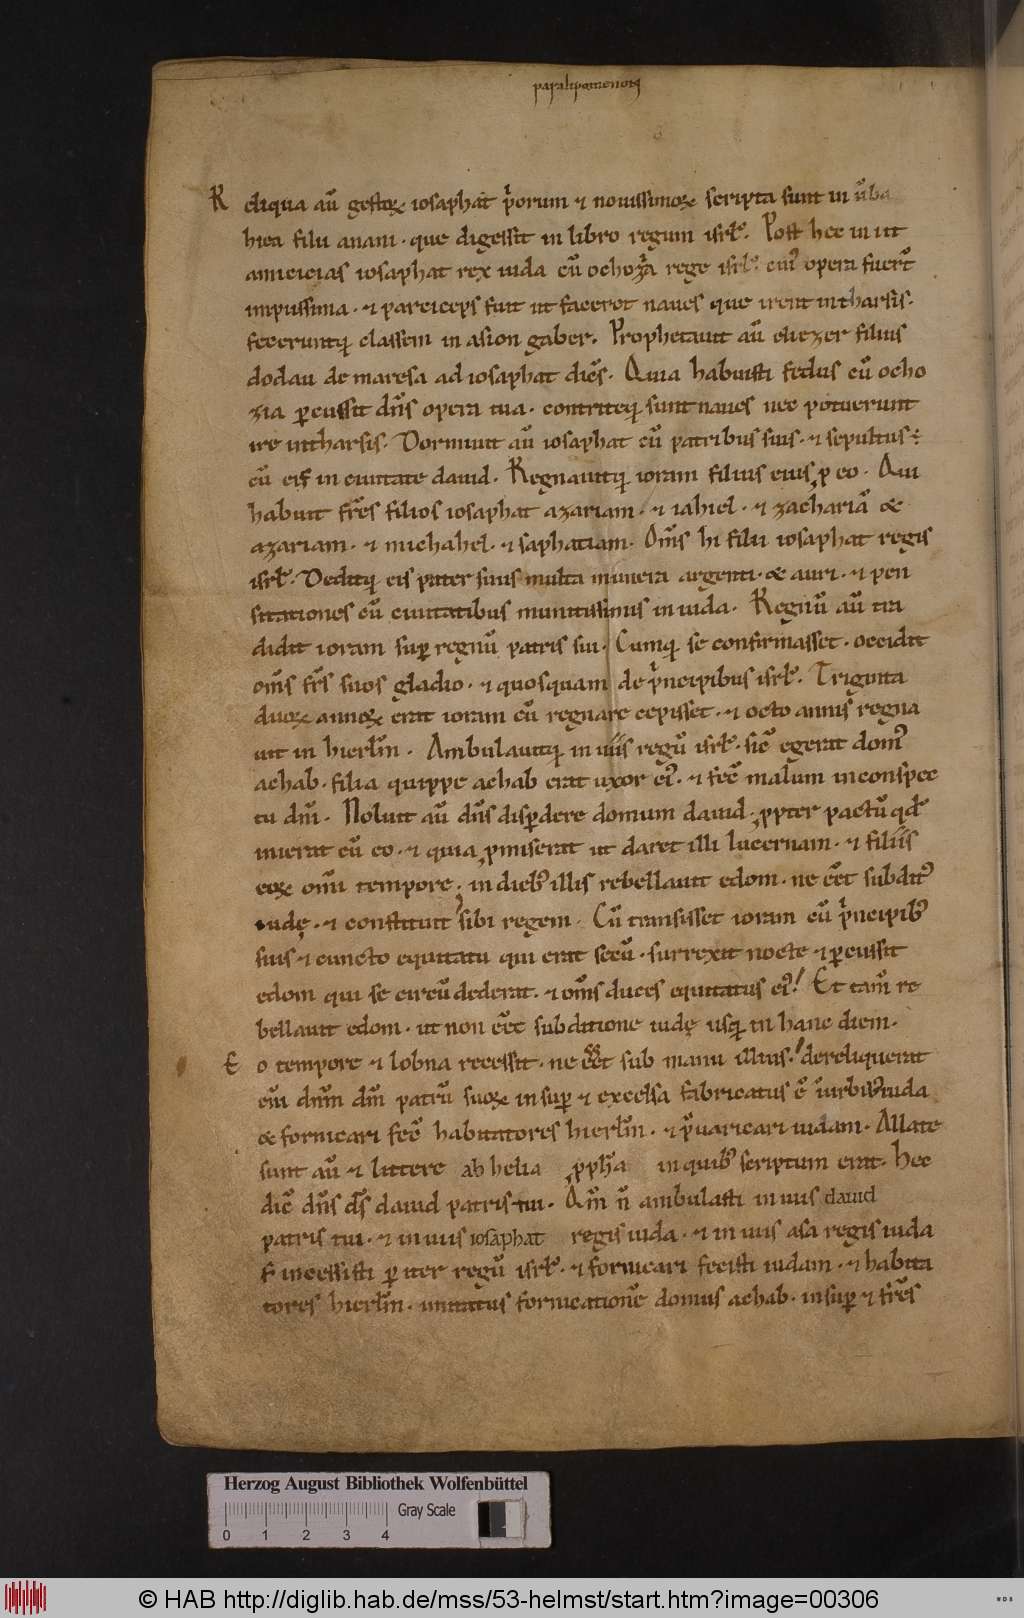 paralipomenon
R eliqua aũ gestoꝝ iosaphat pͥorum ⁊ nouissimoꝝ scripta sunt in ũba
hieu filii anani · que digessit in libro regum isrł. Post hec in iit
amicicias iosaphat rex iuda cũ ochozia rege isrł. cuiꝰ opera fuerͭ
impiissima · ⁊ particeps fuit ut facerët naues que irent in tharsis·
feceruntqꝫ classem in asion gaber. Prophetauit aũ eliezer filius
dodau de maresa ad iosaphat dicẽs. Quia habuisti fedus cũ ocho
zia ꝑcussit dñs opera tua · contriteqꝫ sunt naues nec potuerunt
ire in tharsis. Dormiuit aũ iosaphat cũ patribus suis · ⁊ sepultus ÷
cũ eis in ciuitate dauid. Regnauitqꝫ ioram filius eius ꝓ eo · Qui
habuit fr̃es filios iosaphat azariam · ⁊ iahiel · ⁊ zachariã &
azariam · ⁊ michahel · ⁊ saphatiam. Om̃s hi filii iosaphat regis
isrł. Deditqꝫ eis pater suus multa munera argenti · & auri · ⁊ pen
sitationes cũ ciuitatibus munitissimis in iuda. Regnũ aũ tra
didit ioram suꝑ regnũ patris sui. Cumqꝫ se confirmasset · occidit
om̃s fr̃s suos gladio · ⁊ quosquam de pͥncipibus isrł. Triginta
duoꝝ annoꝝ erat ioram cũ regnare cepisset · ⁊ octo annis regna
uit in hierłm. Ambulauitqꝫ in uiis regũ isrł. sic̃ egerat domꝰ
achab · filia quippe achab erat uxor eiꝰ · ⁊ fec̃ malum in conspec
tu dñi. Noluit aũ dñs disꝑdere domum dauid · ꝓpter pactũ qđ
inierat cũ eo · ⁊ quia ꝓmiserat ut daret illi lucernam · ⁊ filiis
eoꝝ omni tempore · in diebꝰ illis rebellauit edom · ne eẽt subditꝰ
iudę · ⁊ constituit sibi regem · Cũ transisset ioram cũ pͥncipibꝰ
suis ⁊ cuncto equitatu qui erat secũ · surrexit nocte ⁊ ꝑcussit
edom qui se circũdederat · ⁊ om̃s duces equitatus eiꝰ. Et tam̃ re
bellauit edom · ut non eẽt sub ditione iudę usqꝫ in hanc diem.
E o tempore ⁊ lobna recessit · ne eẽt sub manu illius. dereliquerat
eñi dñm dm̃ patrũ suoꝝ insuꝑ ⁊ excelsa fabricatus ẽ in urbibꝰ iuda
& fornicari fec̃ habitatores hierłm · ⁊ pͥuaricari iudam. Allate
sunt aũ ⁊ littere ab helia ꝓph̃a in quibꝰ scriptum erat. Hec
dic̃ dñs ds̃ dauid patris tui. Qm̃ ñ ambulasti in uiis dauid
patris tui · ⁊ in uiis iosaphat regis iuda · ⁊ in uiis asa regis iuda
s; incessisti ꝑ iter regũ isrł. ⁊ fornicari fecisti iudam · ⁊ habita
tores hierłm · imitatus fornicationẽ domus achab · insuꝑ ⁊ fr̃es
Herzog August Bibliothek Wolfenbüttel
Gray Scale
0 1 2 3 4
© HAB http://diglib.hab.de/mss/53-helmst/start.htm?image=00306